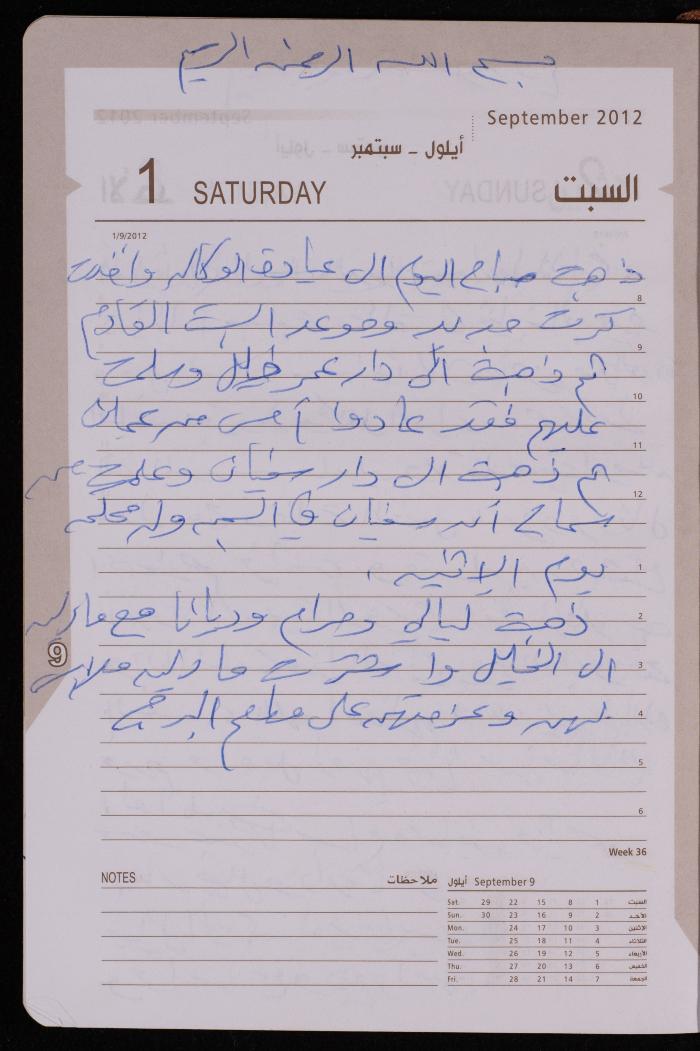 بسم الله الرحمن الرحيم
September 2012
أيلول - سبتمبر
1 SATURDAY السبت
1/9/2012
ذهبت صباح اليوم الى عيادة الوكالة واخذت
8
كرت جديد وموعد السبت القادم
9
ثم ذهبة الى دار عمر خليل وسلمت
10
عليهم فقد عادوا أمس من عمان
11
ثم ذهبة الى دار سفيان وعلمت من
12
سماح أن سفيان في السجن وله محكمه
يوم الاثنين .
1
ذهبة ليالي ومرام وديانا مع مادلين
2
9
الى الخليل واشترت مادلين ملابس
3
لهن وعزمتهن على مطعم البرج
4
5
6
Week 36
NOTES ملاحظات
September 9 أيلول
Sat. 29 22 15 8 1 السبت
Sun. 30 23 16 9 2 الأحد
Mon. 24 17 10 3 الاثنين
Tue. 25 18 11 4 الثلاثاء
Wed. 26 19 12 5 الأربعاء
Thu. 27 20 13 6 الخميس
Fri. 28 21 14 7 الجمعة